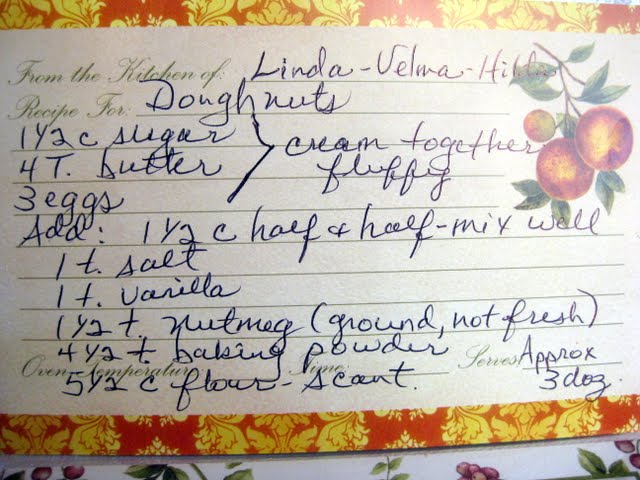 From the Kitchen of: Linda-Velma-Hilda
Recipe For: Doughnuts
1 1/2 c sugar
4 T. butter } cream together fluffy
3 eggs
Add: 1 1/2 c half & half-mix well
1 t. salt
1 t. vanilla
1 1/2 t. nutmeg (ground, not fresh)
4 1/2 t. baking powder
Oven Temperature: Time: Serves: Approx
5 1/2 c flour - scant. 3 doz.